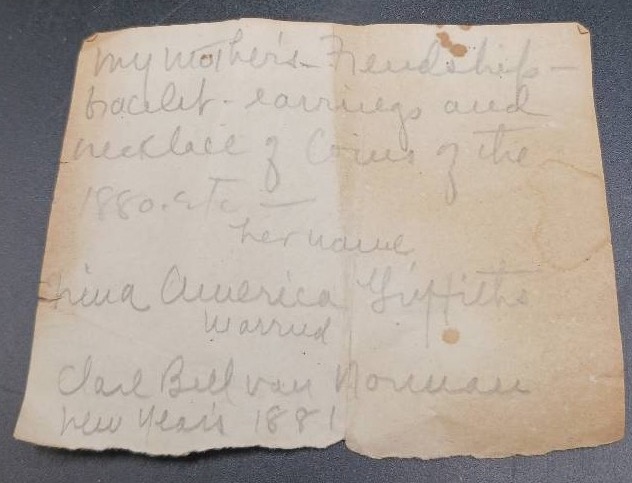 my mother's - Friendship -
bracelet - earrings and
necklace of Coins of the
1880. etc —
her name
America Griffiths
Married
Bell van Norman
New Years 1881